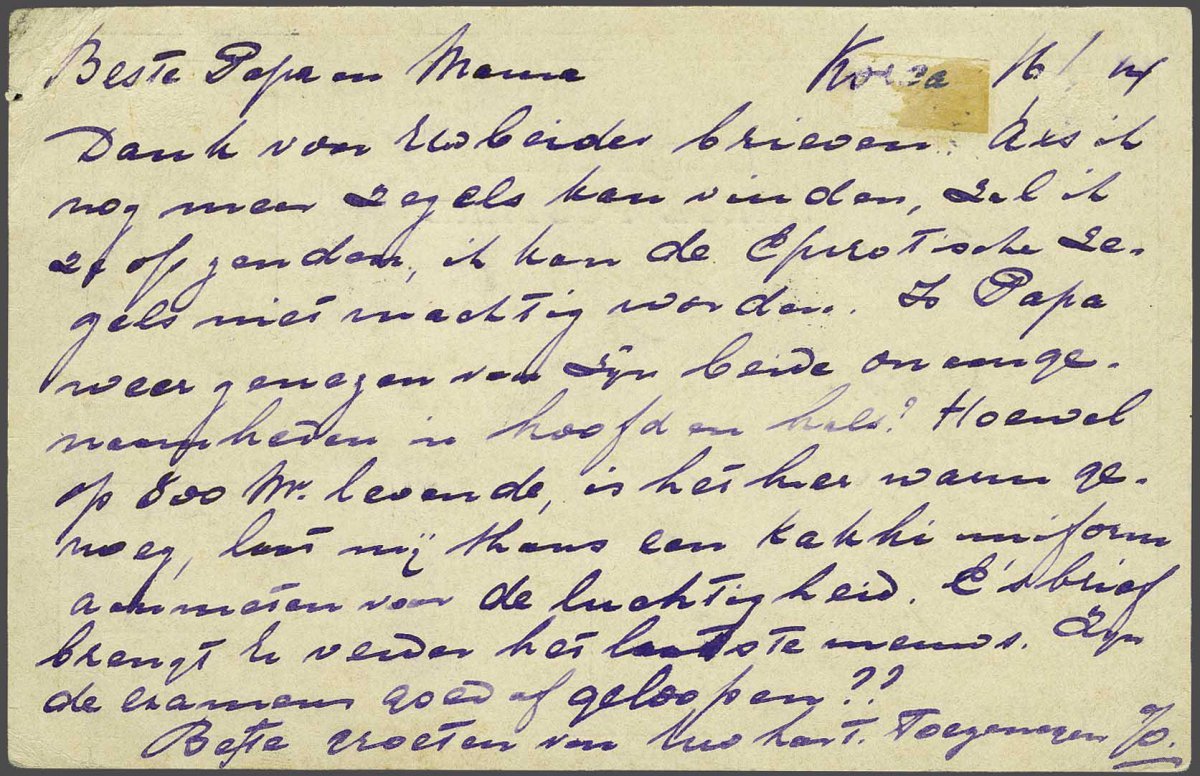 Beste Papa en Mama Korca 16/ 14
Dank voor Uw beider brieven. Als ik
nog meer zegels kan vinden, zal ik
ze op zenden, ik kan de Epirotische ze-
gels niet machtig worden. Is Papa
weer genezen van zijn beide onaange-
naamheden in hoofd en hals? Hoewel
op 800 M. levende, is het hier warm ge-
noeg, laat mij thans een kakhi uniform
aanmeten voor de luchtigheid. E's brief
brengt U verder het laatste nieuws. Zijn
de examens goed afgeloopen??
Beste groeten van Uw hart. Toegenegen Jo.